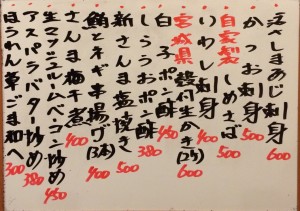 活〆しまあじ刺身 600
かつお刺身 500
自家製しめさば 500
いわし刺身 400
宮城県殻付生かき(2ヶ) 600
白子ポン酢 450
しらうおポン酢 380
新さんま塩焼き 500
鮪とネギ串揚げ(3本) 400
さんま梅干煮 400
生マッシュルームベーコン炒め 450
アスパラバター炒め 380
ほうれん草ごま和へ 300